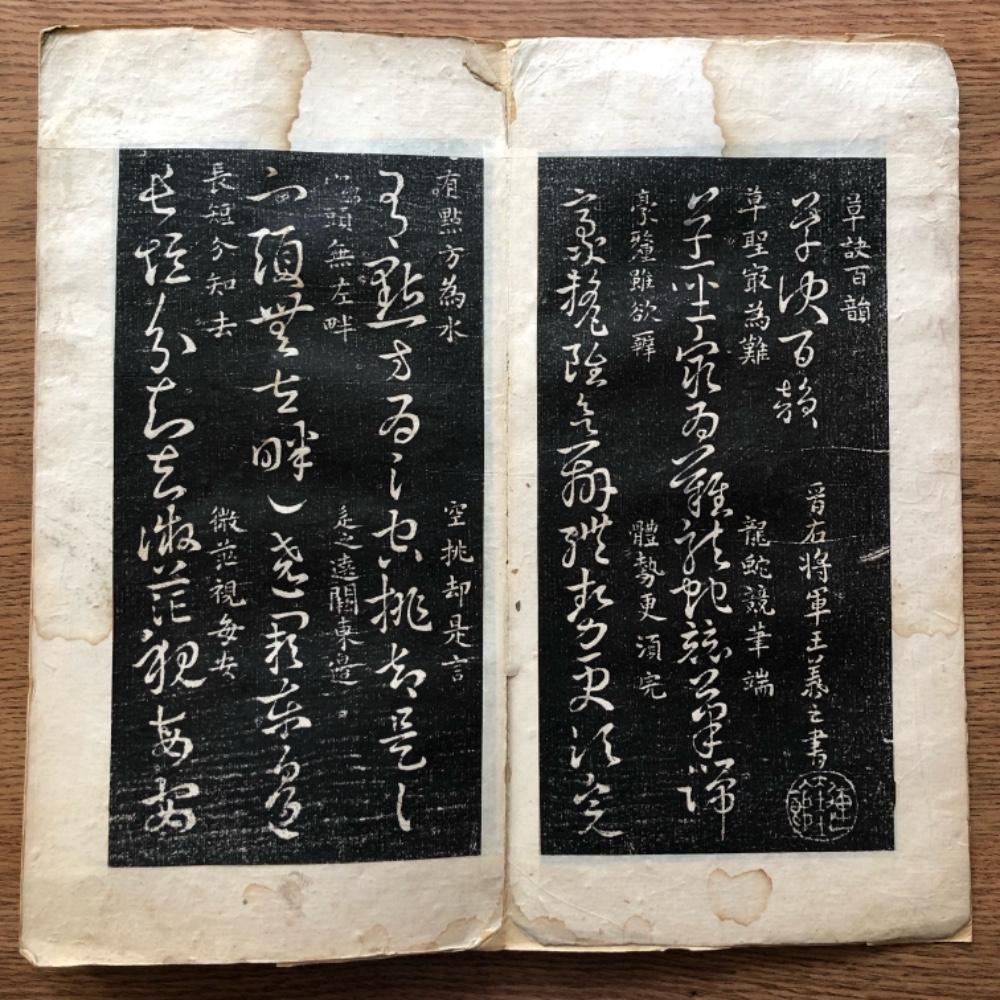 草訣百韻
草訣百韻
晉右將軍王羲之書
草聖冣為難
龍蛇競筆端
草聖冣為難龍蛇競筆端
豪釐雖欲辨
體勢更須完
豪釐雖欲辨體勢更須完
有點方為水
空挑却是言
有點方為水空挑却是言
頭無左畔
遠闕東邊
頭無左畔遶闕東邊
長短分知去
微茫視每安
長短分知去微茫視每安